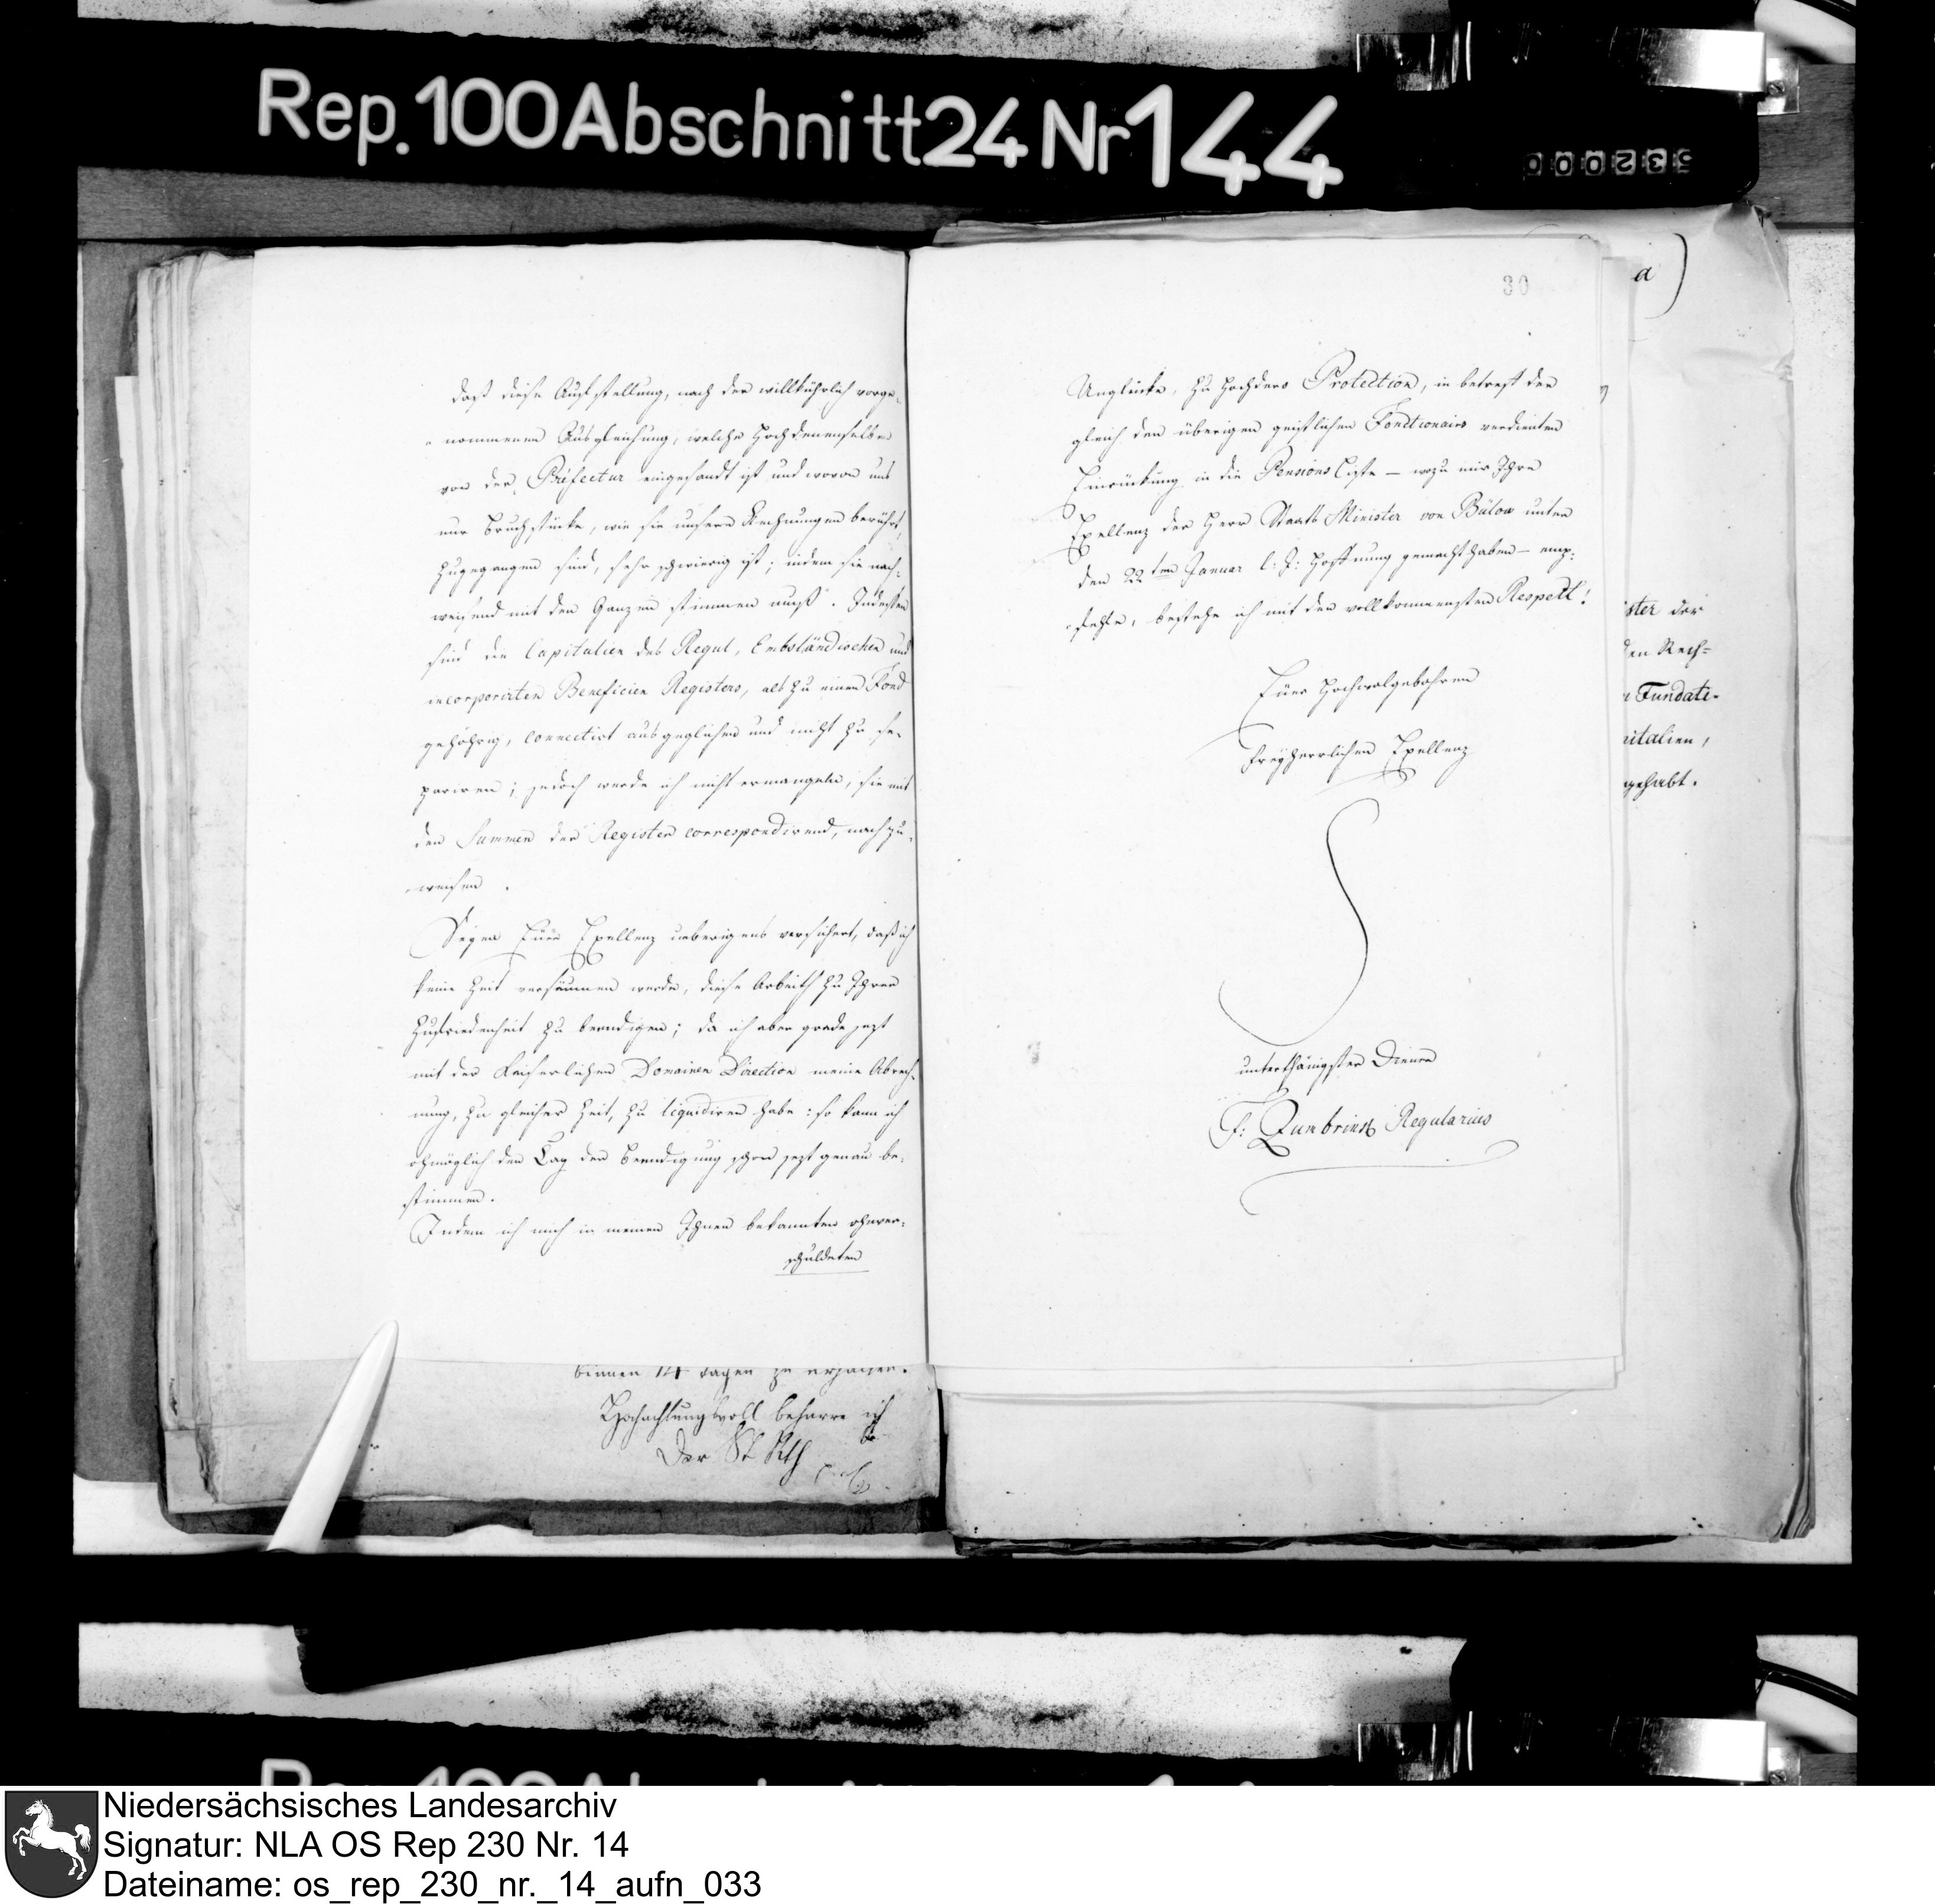 Rep. 100 Abschnitt 24 Nr 144
000235
daß diese Aufstellung, nach der willkührlich vorge-
nommenen Ausgleichung, welche Hochdenenselben
von der Präfectur eingesandt ist und wovon uns
nur Bruchstücke, wie sie unsere Rechnungen berührt,
zugegangen sind, sehr schwierig ist; indem sie nach-
weisend mit den Ganzen stimmen muß. Indessen
sind die Capitalien des Regul, und
incorporirten Beneficien Registers, als zu einen Fond
gehöhrig, connectirt ausgeglichen und nicht zu se-
pariren; jedoch werde ich nicht ermangeln, sie mit
den Summen der Register correspondirend, nachzu-
weisen.
Seyen Euer Exellenz ueberigens versichert, daß ich
keine Zeit versäumen werde, diese Arbeith zu Ihrer
Zufriedenheit zu beendigen; da ich aber grade jezt
mit der Kaiserlichen Domainen Direction meine Abrech-
nung, zu gleicher Zeit, zu liquidiren habe: so kann ich
ohmöglich den Tag der Beendigung schon jezt genau be-
stimmen.
Indem ich mich in meinen Ihnen bekannten ohnver-
schuldeten
binnen 14 Tagen zu erhalten.
Hochachtungsvoll beharre ich
Der St Rth
30
Unglücke, zu Hochdero Protection, in betreff der
gleich den überigen geistlichen Fonctionairs verdienten
Einrückung in die Pensions Liste – wozu mir Ihre
Exellenz der Herr Staats Minister von Bülow unter
den 22ten Januar l: J: Hoffnung gemacht haben – emp-
fehle, bestehe ich mit den vollkommensten Respekt!
Euer Hochwolgebohren
Freyherrlichen Exellenz
unterthänigster Diener
F: Zumbrinck Regularius
a)
ster der
den Rech-
Fundati-
pitalien,
gehabt.
Niedersächsisches Landesarchiv
Signatur: NLA OS Rep 230 Nr. 14
Dateiname: os_rep_230_nr._14_aufn_033